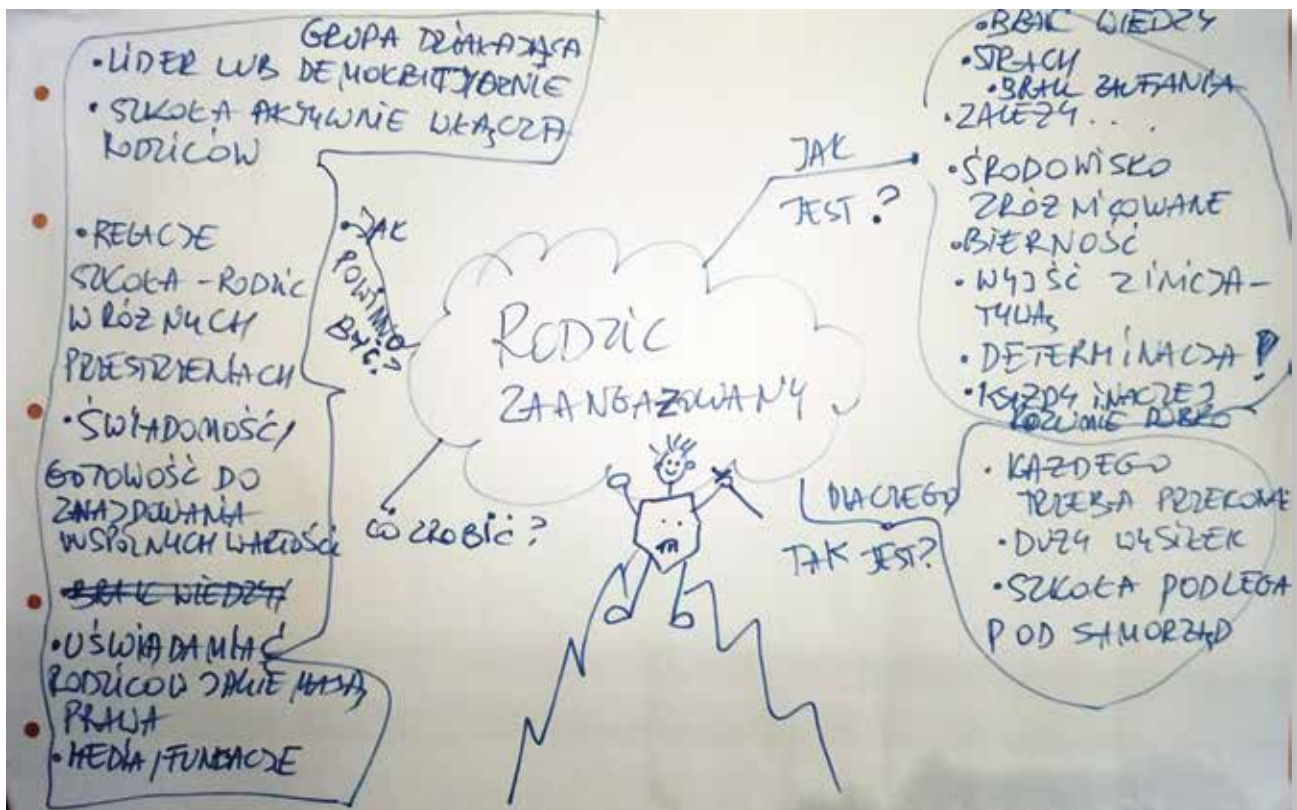 GRUPA DZIAŁAJĄCA
• LIDER LUB DEMOKRATYCZNIE
• SZKOŁA AKTYWNIE WŁĄCZA
RODZICÓW
• RELACJE
SZKOŁA - RODZIC
W RÓŻNYCH
PRZESTRZENIACH
• ŚWIADOMOŚĆ /
GOTOWOŚĆ DO
ZNAJDOWANIA
WSPÓLNYCH WARTOŚCI
BRAK WIEDZY /
• UŚWIADAMIAĆ
RODZICÓW JAKIE MAJĄ
PRAWA
• MEDIA / FUNDACJE
• JAK
POWINNO
BYĆ?
CO ZROBIĆ?
RODZIC
ZAANGAŻOWANY
JAK
JEST?
• BRAK WIEDZY
• STRACH
• BRAK ZAUFANIA
• ZALEŻY...
• ŚRODOWISKO
ZRÓŻNICOWANE
• BIERNOŚĆ
• WYJŚĆ Z INICJA-
TYWĄ
• DETERMINACJA!
• KAŻDY INACZEJ
ROZUMIE DOBRO
DLACZEGO
TAK JEST?
• KAŻDEGO
TRZEBA PRZEKONAĆ
• DUŻY WYSIŁEK
• SZKOŁA PODLEGA
POD SAMORZĄD